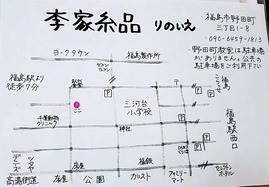 李家糸品 りのいえ
福島市野田町
三丁目1-8
090-6459-1813
・野田町教室は駐車場
がありません。公共の
駐車場をご利用下さい
ヨークタウン
福島製作所
セブンイレブン
福島駅より
徒歩7分
三河台
小学校
千葉動物
クリニック
神社
福島駅西口
高湯街道
公園
カリスト
ファミリー
マート
ホテル
P
P
P
P